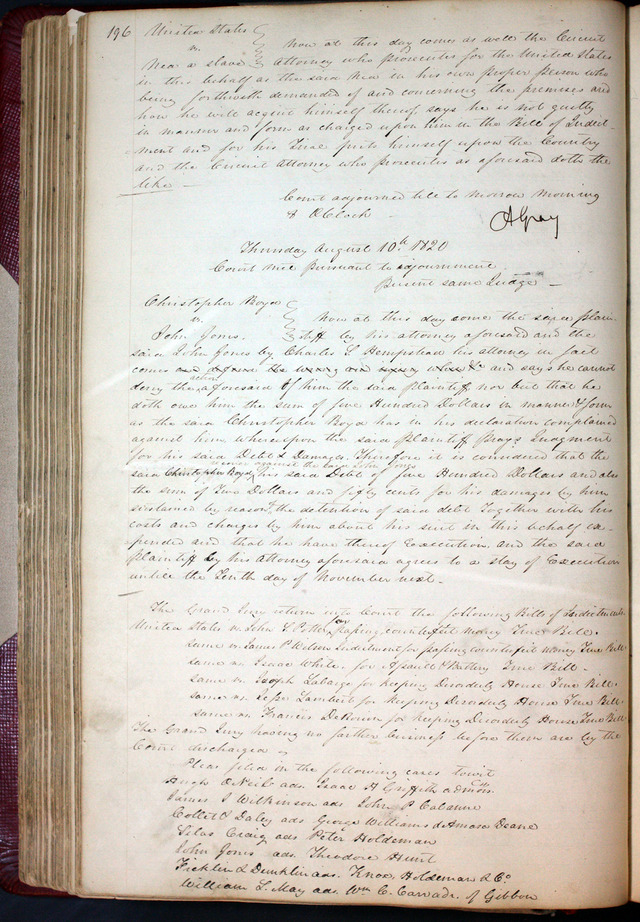 196 United States
vs.
Now at this day comes as well the Circuit
Nea a slave Attorney who prosecutes for the United States
in this behalf as the said Nea in his own proper person who
being forthwith demanded of and concerning the premises and
how he will acquit himself thereof, says he is not guilty
in manner and form as charged upon him in the Bill of Indict-
ment and for his Trial puts himself upon the Country
and the Circuit Attorney who prosecutes as aforesaid doth the
like —
Court adjourned till to morrow morning
8 OClock —
A Gray
Thursday August 10th 1820
Court met pursuant to adjournment
Present same Judge —
Christopher Boyd
vs. Now at this day came the said plain-
John Jones. tiff by his attorney aforesaid and the
said John Jones by Charles S Hempstead his attorney in fact
comes and defends the wrong and injury when &c and says he cannot
deny the action aforesaid of him the said Plaintiff nor but that he
doth owe him the sum of five Hundred Dollars in manner & form
as the said Christopher Boyd has in his declaration complained
against him whereupon the said Plaintiff prays Judgment
for his said Debt & Damages. Therefore it is considered that the
said Christopher Boyd recover against the said John Jones his said Debt of five Hundred Dollars and also
the sum of Two Dollars and fifty cents for his damages by him
sustained by reason of the detention of said debt Together with his
costs and charges by him about his suit in this behalf ex-
pended and that he have thereof Execution, and the said
Plaintiff by his Attorney aforesaid agrees to a stay of Execution
untill the Tenth day of November next.
The Grand Jury return into Court the following Bills of Indictment
United States vs. John S Potter for passing counterfeit money True Bill.
same vs. James P Wilson Indictment for passing counterfeit money True Bill
same vs. Isaac White. for Assault & Battery True Bill.
same vs. Joseph Labarge for keeping Disorderly House True Bill.
same vs. Lambert for keeping Disorderly House True Bill.
same vs. Francis DeRouin for keeping Disorderly House True Bill
The Grand Jury having no further business before them are by the
Court discharged
Pleas filed in the following cases towit
Hugh ONeil ads. Isaac A Griffith admors.
James I Wilkinson ads John P Cabanne
Collet & Daley ads George Williams & Amasa Deane
Silas Craig ads Peter Holdeman
John Jones ads. Theodore Hunt
Ficklen & Dunklin ads. Knox, Holdeman & Co
William L. May ads. Wm C. Carr adr. of Gibbon